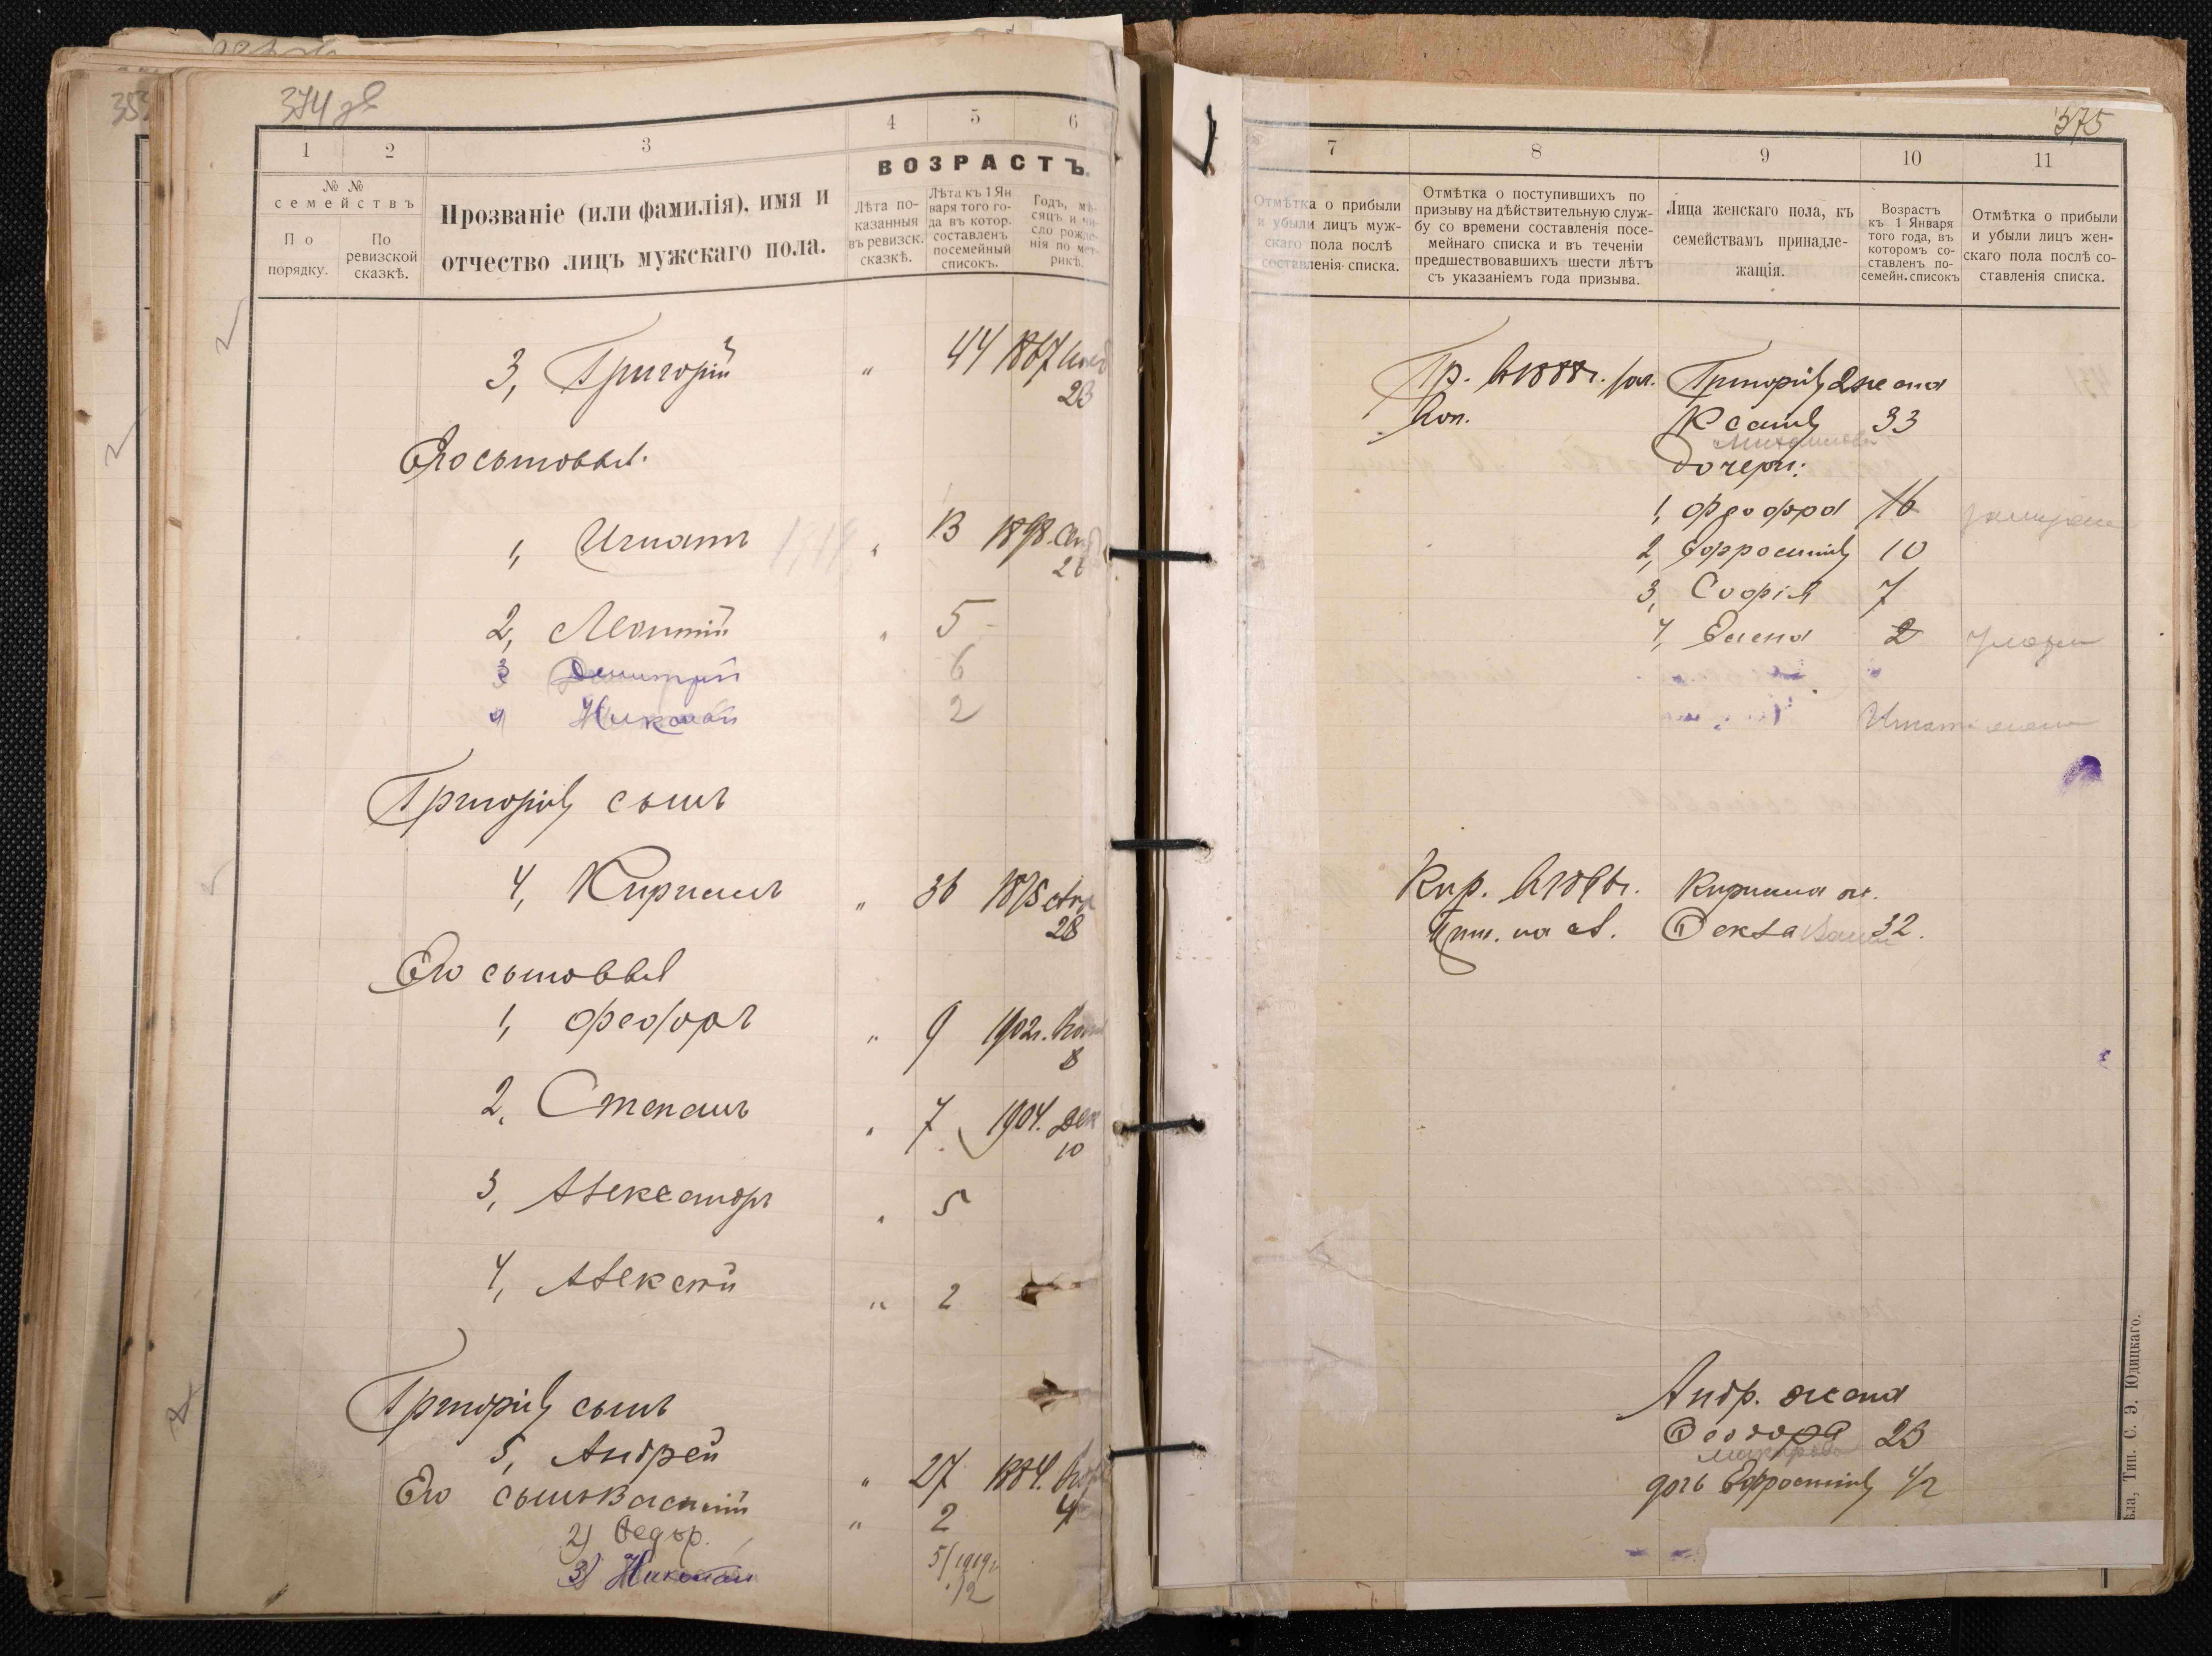 374 зв
1
2
3
4
5
6
ВОЗРАСТЪ.
№ №
семействъ
По
порядку.
По
ревизской
сказкѣ.
Прозваніе (или фамилія), имя и
отчество лицъ мужскаго пола.
Лѣта по-
казанныя
въ ревизск.
сказкѣ.
Лѣта къ 1 Ян
варя того го-
да въ котор.
составленъ
посемейный
списокъ.
Годъ, мѣ-
сяцъ и чи-
сло рожде-
нія по мет-
рикѣ.
3, Григорій " 44 1867
23
Его сыновья.
1, Игнатъ " 13 1898.
2, Леонтій " 5
3 Димитрій 6
4 Николай 2
Григорія сынъ
4, Кириллъ " 36 1875
28
Его сыновья
1, Феодоръ " 9 1902г.
8
2, Степанъ " 7 1904. Дек
10
3, Александръ " 5
4, Алексѣй " 2
Григорія сынъ
5, Андрей " 27 1884.
4
Его сынъ Василій " 2
2) Федор. 5/1919г
3) Николай 1/2
375
7
8
9
10
11
Отмѣтка о прибыли
и убыли лицъ муж-
скаго пола послѣ
составленія списка.
Отмѣтка о поступившихъ по
призыву на дѣйствительную служ-
бу со времени составленія посе-
мейнаго списка и въ теченіи
предшествовавшихъ шести лѣтъ
съ указаніемъ года призыва.
Лица женскаго пола, къ
семействамъ принадле-
жащія.
Возрастъ
къ 1 Января
того года, въ
которомъ со-
ставленъ по-
семейн. списокъ
Отмѣтка о прибыли
и убыли лицъ жен-
скаго пола послѣ со-
ставленія списка.
Гр. 1888г. Григорія 2 жена
Ксенія 33
Дочери:
1, Феодора 16
2, Ефросинія 10
3, Софія 7
4, Елена 2
Кир. Кирилла ж.
Ѳекла 32.
Андр. жена
Ѳеодора 23
дочь Ефросинія 1/2
Тип. С. Э. Юдицкаго.